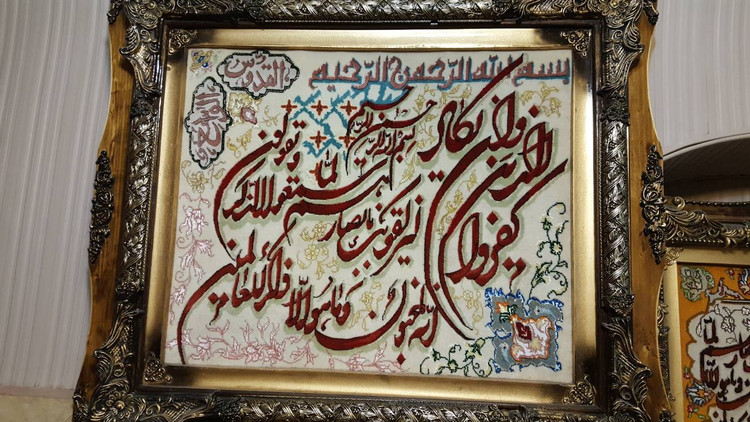 بسم الله الرحمن الرحیم
القدوس
بسم الله الرحمن الرحیم
وان یکاد
الذین
کفروا
لیزلقونک بابصارهم
لما سمعوا الذکر
ویقولون
انه لمجنون
وما هو الا
ذکر للعالمین